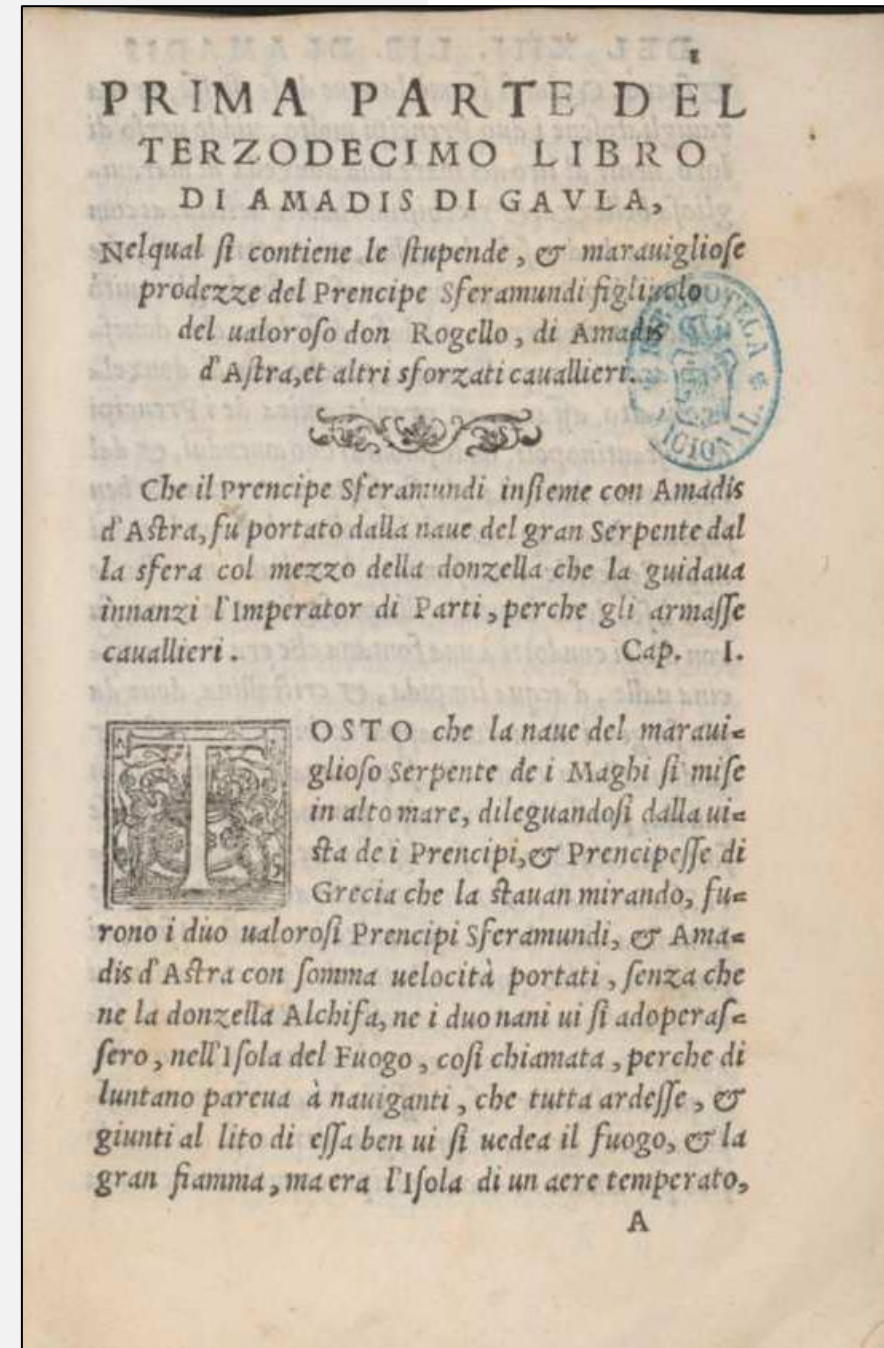 1
PRIMA PARTE DEL
TERZODECIMO LIBRO
DI AMADIS DI GAVLA,
Nelqual ſi contiene le ſtupende, & marauiglioſe
prodezze del Prencipe Sferamundi figliuolo
del ualoroſo don Rogello, di Amadis
d'Aſtra, et altri sforzati cauallieri.
Che il Prencipe Sferamundi inſieme con Amadis
d'Aſtra, fu portato dalla naue del gran Serpente dal
la sfera col mezzo della donzella che la guidaua
innanzi l'Imperator di Parti, perche gli armaſſe
cauallieri. Cap. I.
TOSTO che la naue del maraui=
glioſo Serpente de i Maghi ſi miſe
in alto mare, dileguandoſi dalla ui=
ſta de i Prencipi, & Prencipeſſe di
Grecia che la ſtauan mirando, fu=
rono i duo ualoroſi Prencipi Sferamundi, & Ama=
dis d'Aſtra con ſomma uelocità portati, ſenza che
ne la donzella Alchifa, ne i duo nani ui ſi adoperaſ=
ſero, nell'Iſola del Fuogo, coſi chiamata, perche di
luntano pareua à nauiganti, che tutta ardeſſe, &
giunti al lito di eſſa ben ui ſi uedea il fuogo, & la
gran fiamma, ma era l'Iſola di un aere temperato,
A